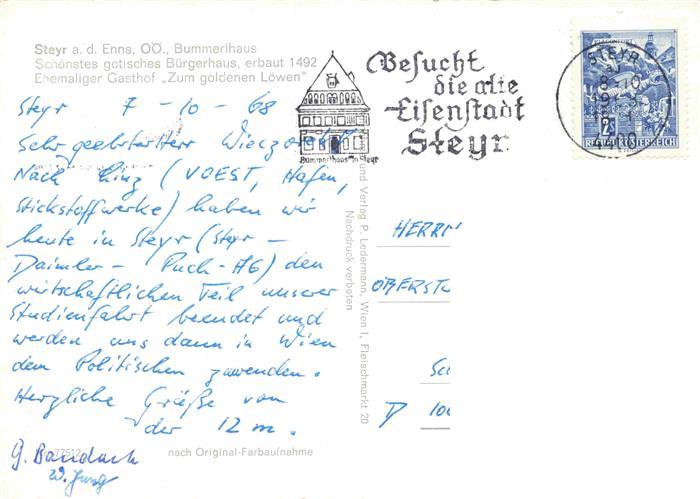 Steyr a. d. Enns, OÖ., Bummerlhaus
Schönstes gotisches Bürgerhaus, erbaut 1492
Ehemaliger Gasthof „Zum goldenen Löwen"
Besucht
die alte
Eisenstadt
Steyr
Bummerlhaus in Steyr
STEYR
2
REPUBLIK ÖSTERREICH
Steyr 7-10-68
Sehr geehrter Herr
Nach Linz (VOEST, Hafen,
Stickstoffwerke) haben wir
heute in Steyr (Steyr-
Daimler-Puch-AG) den
wirtschaftlichen Teil unserer
Studienfahrt beendet und
werden uns dann in Wien
dem Politischen zuwenden.
Herzliche Grüße von
der 12 m.
G. Bandach
W. Jung
nach Original-Farbaufnahme
und Verlag P. Ledermann, Wien I, Fleischmarkt 20
Nachdruck verboten
HERRN
OBERSTU
D